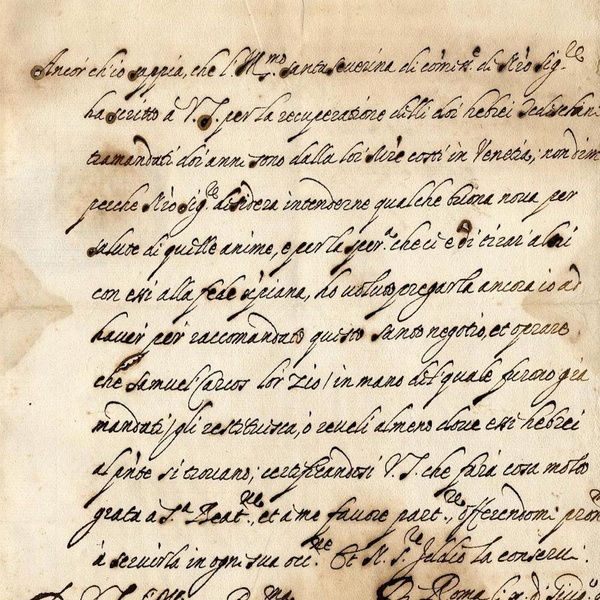 Ancor ch'io sappia, che l'Ill.mo Santa Severina di com.ne di N.ro Sig.re
ha scritto a V.S. per la recuperatione delli doi hebrei
tramandati doi anni sono dalla lor M̃re costì in Venetia; nondim
perche N.ro Sig.re desidera intenderne qualche buona nova per
salute di quelle anime, e per la sper.a che ci è di tirar altri
con essi alla fede xpiana, ho voluto pregarla ancora io ad
haver per raccomandato questo santo negotio, et oprare
che Samuel Carcos lor Zio / in mano del quale furono già
mandati / gli restituisca, o reveli almeno dove essi hebrei
al pñte si trovano; certificandosi V.S. che farà cosa molto
grata a S.a Beat.ne, et a me favore part.re offerendomi pron
a servirla in ogni sua occ.ne Et N. S.re Iddio la conservi.
Roma